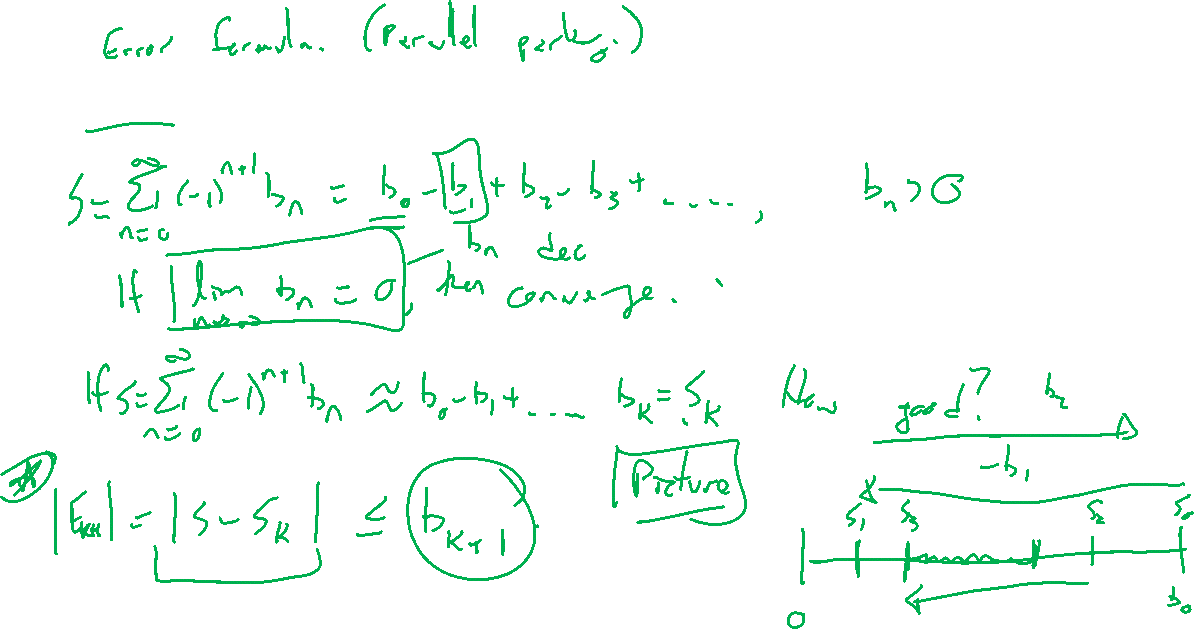 Error formula. (Parallel parking.)
S = ∑_{n=0}^{∞} (-1)^{n+1} b_n = b_0 - b_1 + b_2 - b_3 + ....., b_n > 0
If lim_{n→∞} b_n = 0, b_n dec then converge.
If S = ∑_{n=0}^{∞} (-1)^{n+1} b_n ≈ b_0 - b_1 + .... b_K = S_K How good?
|E_{}| = |S - S_K| ≤ b_{K+1}
Picture
b_2
-b_1
S_1 S_3 S_2 S_0
0 b_0